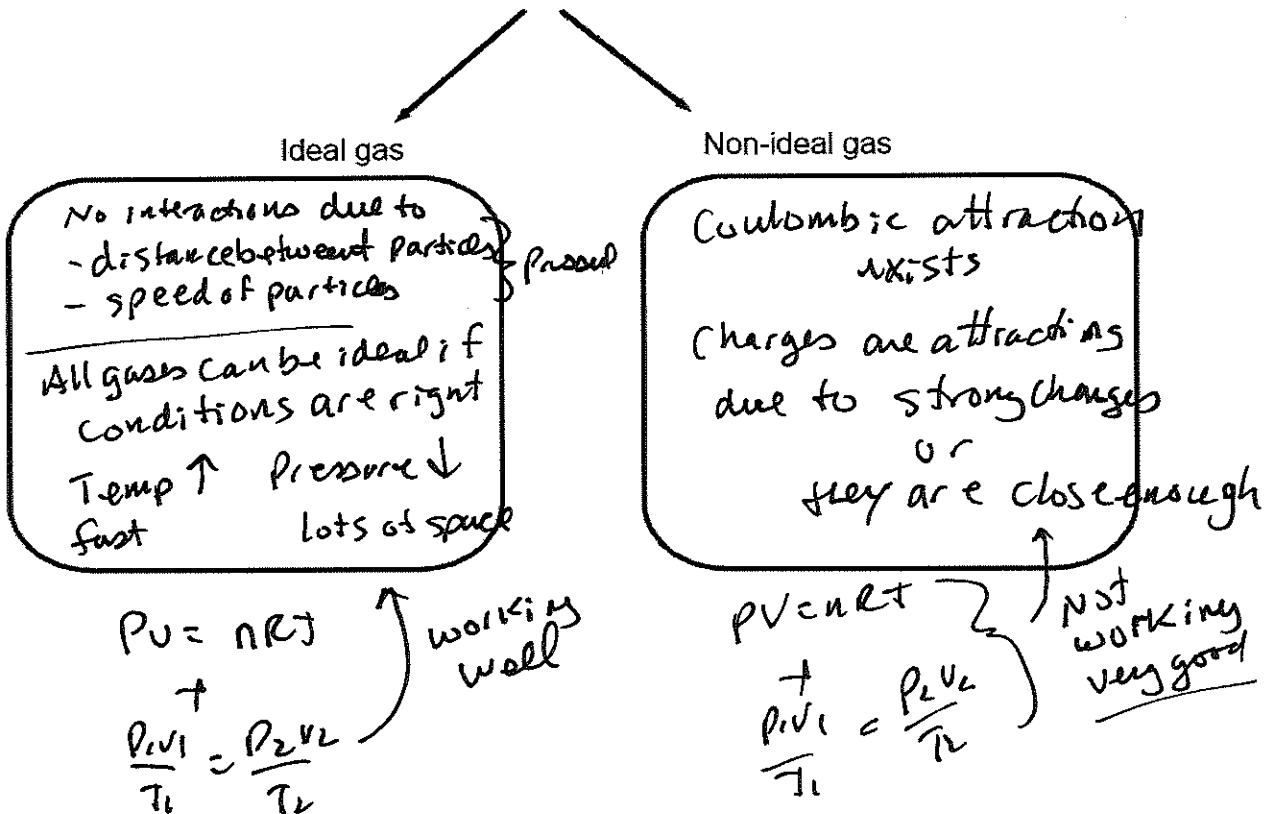 Ideal gas
No interactions due to
- distance between particles
- speed of particles
All gases can be ideal if
conditions are right
Temp ↑ Pressure ↓
fast lots of space
PV = nRT
+
P₁V₁ / T₁ = P₂V₂ / T₂
working
well
Non-ideal gas
Coulombic attraction
exists
Charges are attracting
due to strong charges
or
they are close enough
PV = nRT
+
P₁V₁ / T₁ = P₂V₂ / T₂
Not
working
very good